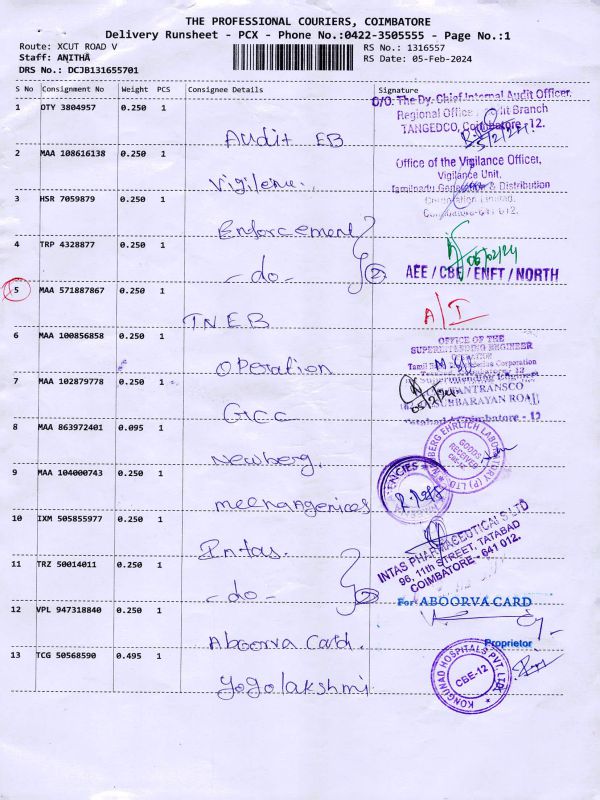 THE PROFESSIONAL COURIERS, COIMBATORE
Delivery Runsheet - PCX - Phone No.:0422-3505555 - Page No.:1
Route: XCUT ROAD V
RS No.: 1316557
Staff: ANITHA
RS Date: 05-Feb-2024
DRS No.: DCJB131655701
S No Consignment No Weight PCS Consignee Details Signature
1 DTY 3804957 0.250 1
Audit EB
O/O. The Dy. Chief Internal Audit Officer,
Regional Office, Audit Branch
TANGEDCO, Coimbatore - 12.
5/2/24
2 MAA 108616138 0.250 1
Vigilence..
Office of the Vigilance Officer,
Vigilance Unit,
Tamilnadu Generation & Distribution
Corporation Limited,
Coimbatore-641 012.
3 HSR 7059879 0.250 1
Enforcement
4 TRP 4328877 0.250 1
- do - 2
06/02/24
AEE / CBE / ENFT / NORTH
15 MAA 571887867 0.250 1
T.N.E.B
A/I
6 MAA 100856858 0.250 1
Operation
OFFICE OF THE
SUPERINTENDING ENGINEER
7 MAA 102879778 0.250 1
GCC
TANTRANSCO
SUBBARAYAN ROAD
Tatabad / Coimbatore - 12
8 MAA 863972401 0.095 1
Newberg.
GOODS
RECEIVED
9 MAA 104000743 0.250 1
meenangenices
10 IXM 505855977 0.250 1
Intas.
INTAS PHARMACEUTICALS LTD
96, 11th STREET, TATABAD
COIMBATORE - 641 012.
11 TRZ 50014011 0.250 1
- do - 2
For ABOORVA CARD
12 VPL 947318840 0.250 1
Aboorva Card.
Proprietor
13 TCG 50568590 0.495 1
Yogolakshmi
KONGUNAD HOSPITALS PVT. LTD.
CBE-12